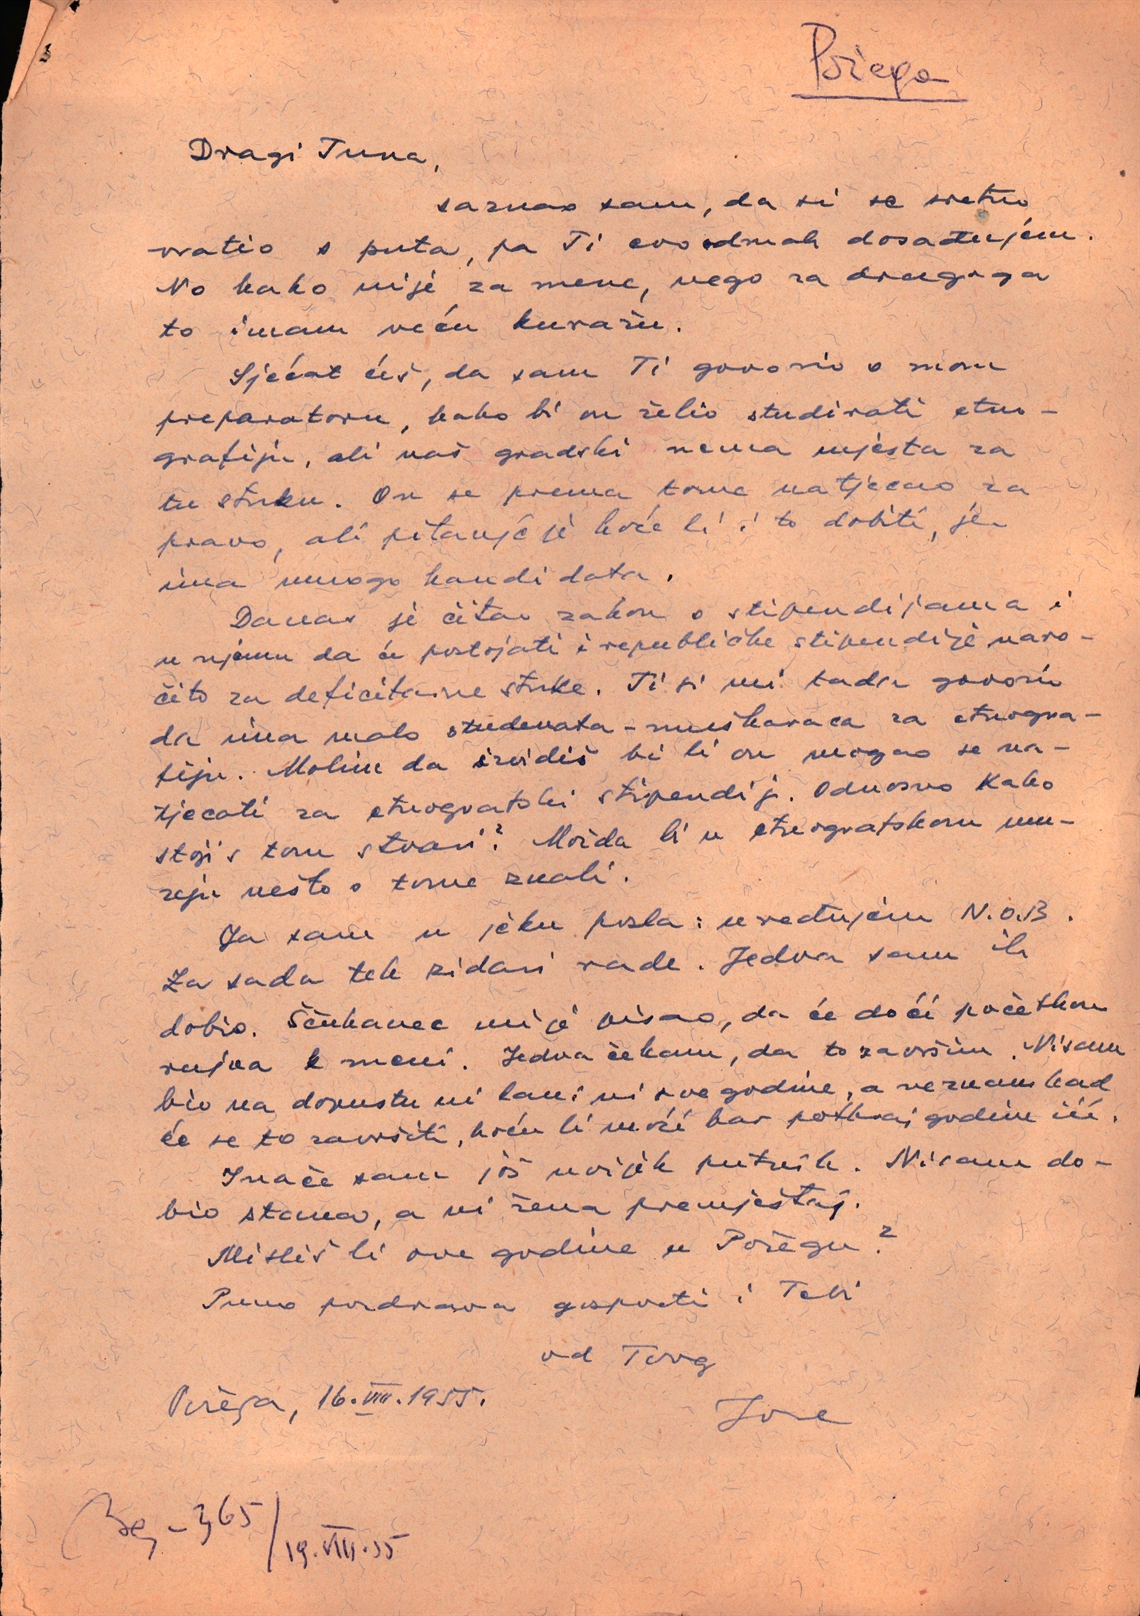 Požega
Dragi Tuna,
saznao sam, da si se sretno
vratio s puta, pa Ti evo odmah dosađujem.
No kako nije za mene, nego za drugoga
to imam veću kuražu.
Sjećat ćeš, da sam Ti govorio o mom
preparatoru, kako bi on želio studirati etno-
grafiju, ali naš gradski nema mjesta za
tu struku. On se prema tome natjecao za
pravo, ali pitanje je hoće li i to dobiti, jer
ima mnogo kandidata.
Danas je čitao zakon o stipendijama i
u njemu da će postojati i republičke stipendije naro-
čito za deficitarne struke. Ti si mi tada govorio
da ima malo studenata-muškaraca za etnogra-
fiju. Molim da izvidiš bi li on mogao se na-
tjecati za etnografski stipendij. Odnosno kako
stoji s tom stvari? Možda bi u etnografskom mu-
zeju nešto o tome znali.
Ja sam u jeku posla: uređujem N.O.B.
Za sada tek zidari rade. Jedva sam ih
dobio. Ščukanec mi je pisao, da će doći početkom
rujna k meni. Jedva čekam, da to završim. Nisam
bio na dopustu ni lani ni ove godine, a ne znam kad
će se to završiti, hoću li moći bar potkraj godine ići.
Inače sam još uvijek putnik. Nisam do-
bio stana, a ni žena premještaj.
Misliš li ove godine u Požegu?
Puno pozdrava gospođi i Tebi
od Tvog
Požega, 16.VIII.1955.
Joze
365/19.VIII.55